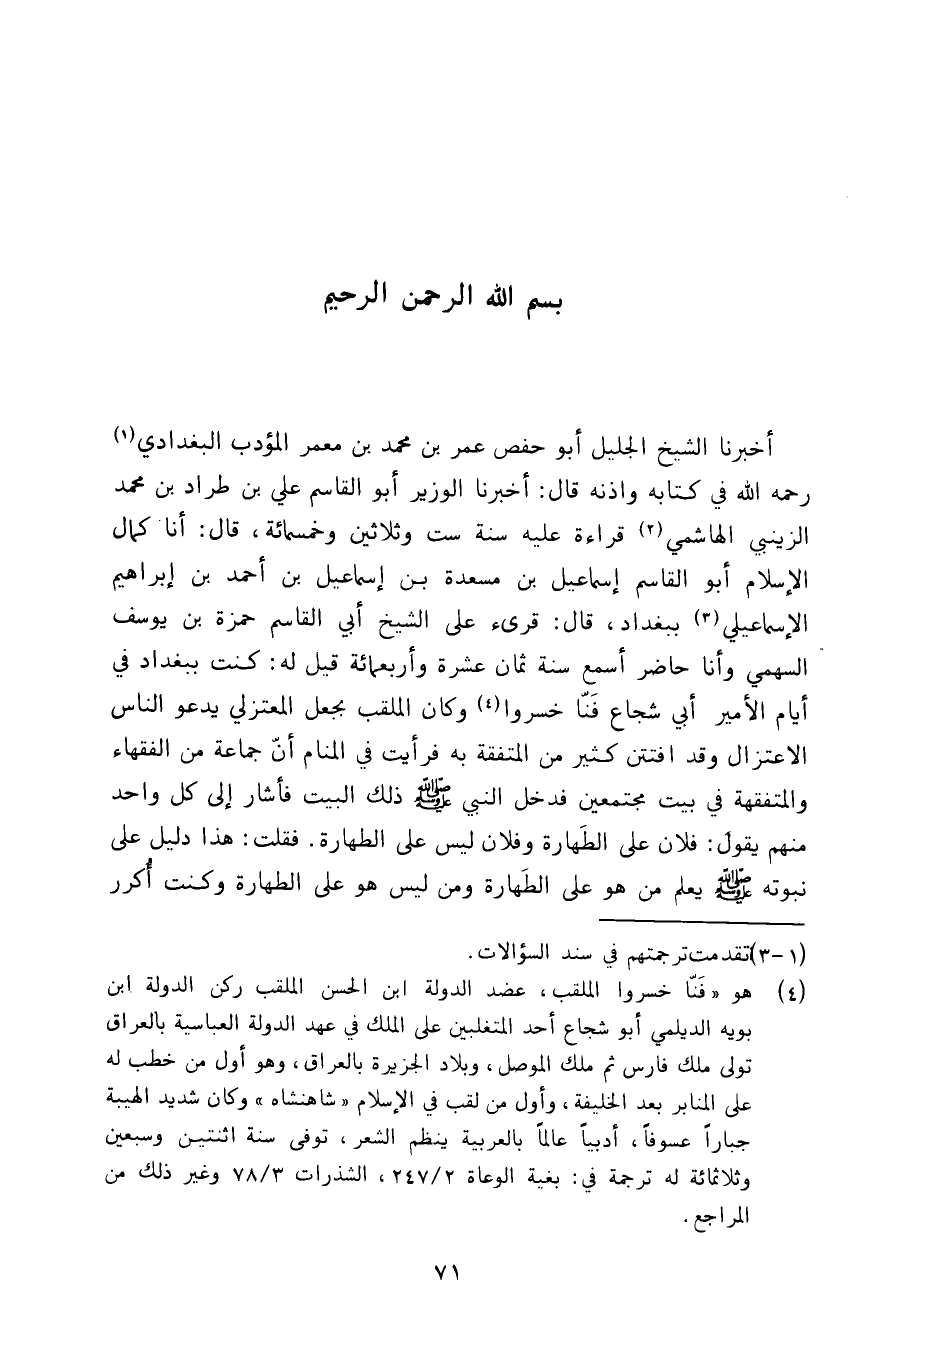 بسم الله الرحمن الرحيم
أخبرنا الشيخ الجليل أبو حفص عمر بن محمد بن معمر المؤدب البغدادي(١)
رحمه الله في كتابه واذنه قال: أخبرنا الوزير أبو القاسم علي بن طراد بن محمد
الزينبي الهاشمي(٢) قراءة عليه سنة ست وثلاثين وخمسمائة، قال: أنا كمال
الإسلام أبو القاسم إسماعيل بن مسعدة بن إسماعيل بن أحمد بن إبراهيم
الإسماعيلي(٣) ببغداد، قال: قرىء على الشيخ أبي القاسم حمزة بن يوسف
السهمي وأنا حاضر أسمع سنة ثمان عشرة وأربعمائة قيل له: كنت ببغداد في
أيام الأمير أبي شجاع فَنّا خسروا(٤) وكان الملقب بجعل المعتزلي يدعو الناس
الاعتزال وقد افتتن كثير من المتفقة به فرأيت في المنام أنّ جماعة من الفقهاء
والمتفقهة في بيت مجتمعين فدخل النبي ﷺ ذلك البيت فأشار إلى كل واحد
منهم يقول: فلان على الطَهارة وفلان ليس على الطهارة. فقلت: هذا دليل على
نبوته ﷺ يعلم من هو على الطَهارة ومن ليس هو على الطهارة وكنت أُكرر
(١-٣)تقدمت ترجمتهم في سند السؤالات.
(٤) هو «فَنّا خسروا الملقب، عضد الدولة ابن الحسن الملقب ركن الدولة ابن
بويه الديلمي أبو شجاع أحد المتغلبين على الملك في عهد الدولة العباسية بالعراق
تولى ملك فارس ثم ملك الموصل، وبلاد الجزيرة بالعراق، وهو أول من خطب له
على المنابر بعد الخليفة، وأول من لقب في الإسلام «شاهنشاه» وكان شديد الهيبة
جباراً عسوفاً، أدبياً عالماً بالعربية ينظم الشعر، توفى سنة اثنتين وسبعين
وثلاثمائة له ترجمة في: بغية الوعاة ٢٤٧/٢، الشذرات ٧٨/٣ وغير ذلك من
المراجع.
٧١